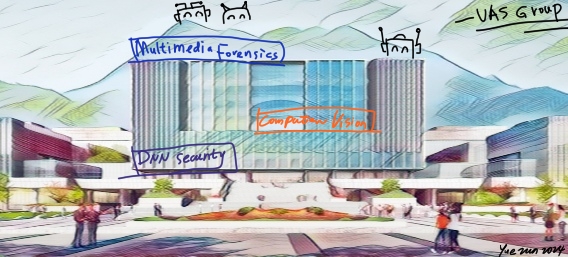 — VAS Group
Multimedia Forensics
Computer Vision
DNN Security
Yuezun 2024